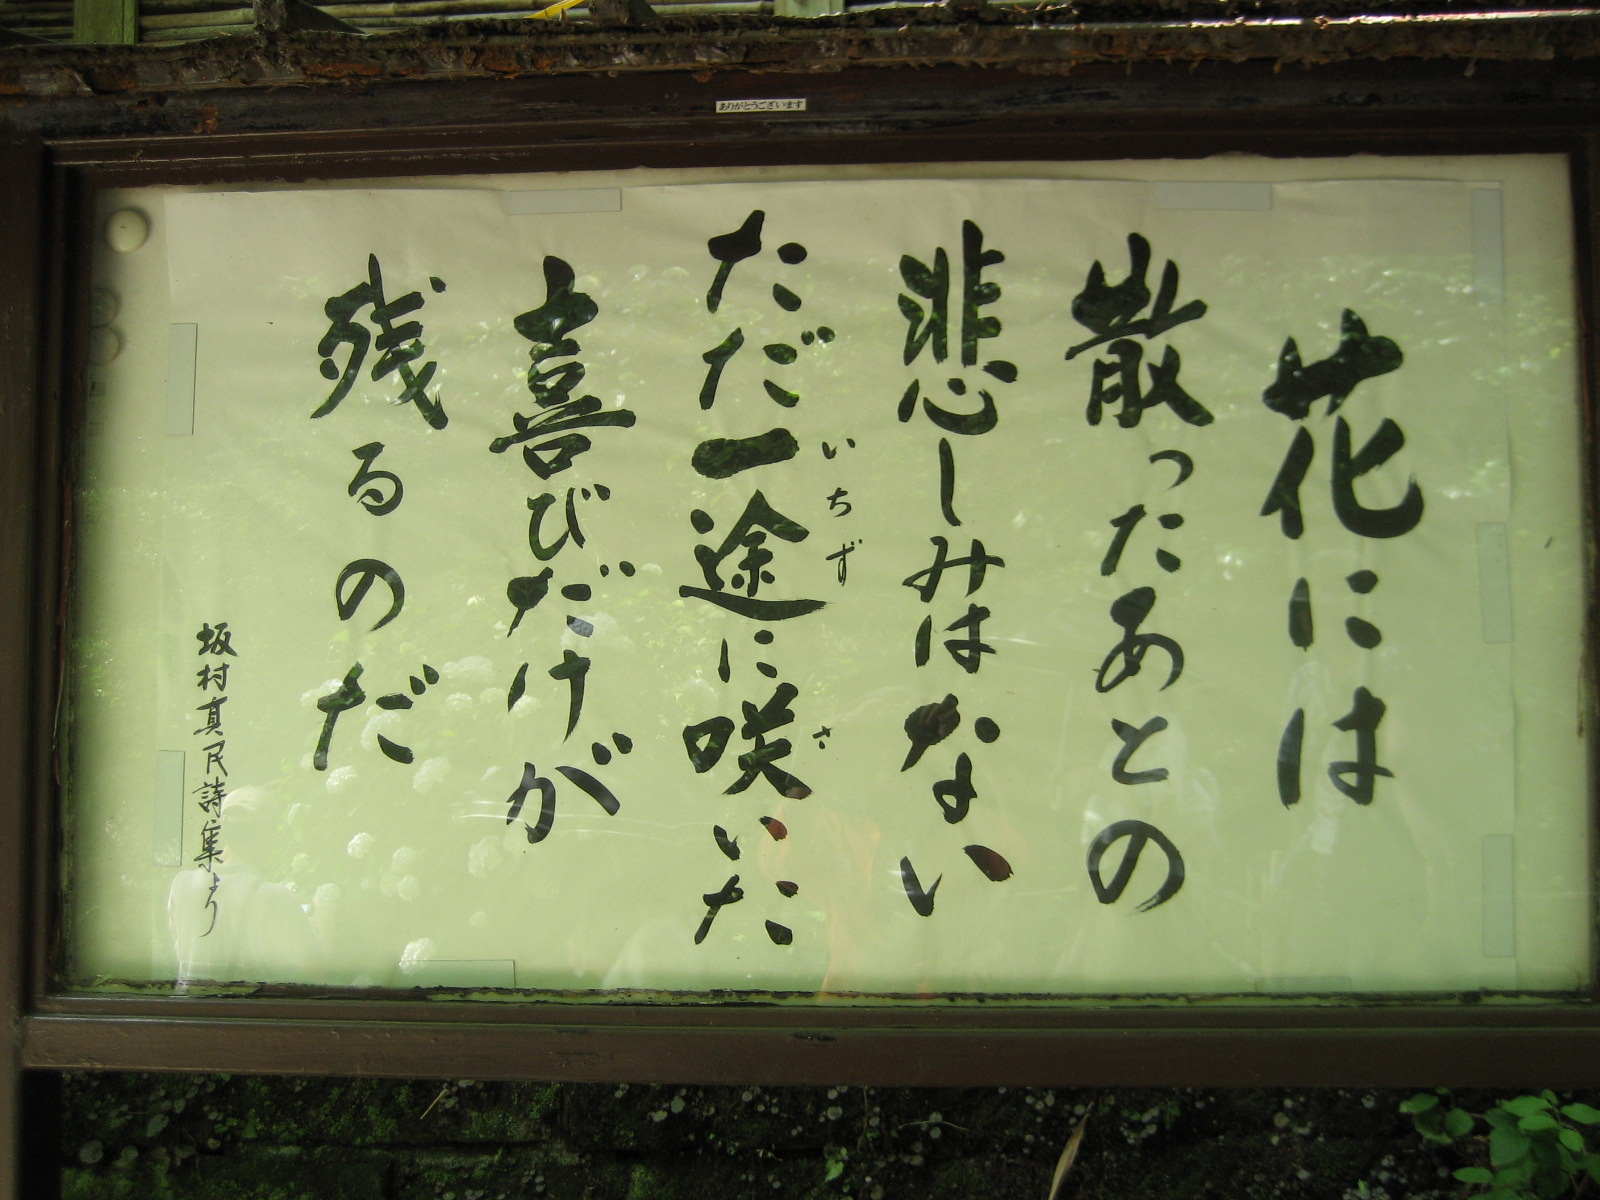 ありがとうございます
花には
散ったあとの
悲しみはない
ただ一途に咲いた
いちず
さ
喜びだけが
残るのだ
坂村真民詩集より